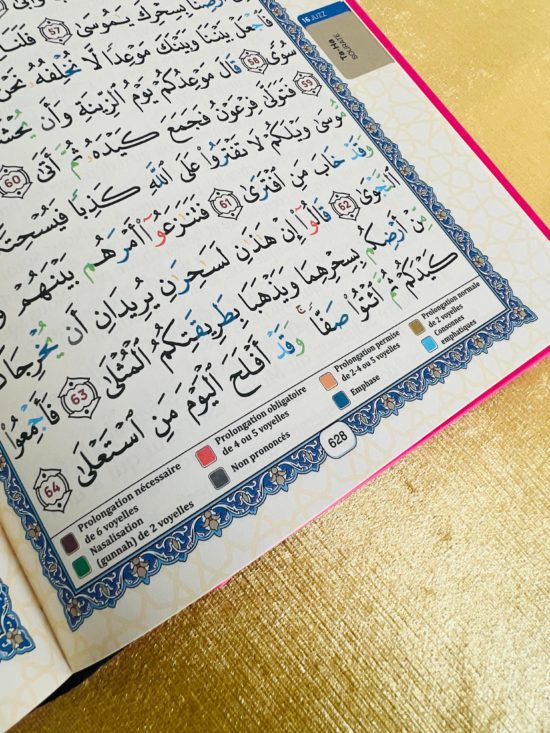 16 JUZZ
Ta-Ha
SOURATE
بِسِحْرِكَ يَـٰمُوسَىٰ 57
فَٱجْعَلْ بَيْنَنَا وَبَيْنَكَ مَوْعِدًا لَّا نُخْلِفُهُۥ نَحْنُ
سُوًى 58 قَالَ مَوْعِدُكُمْ يَوْمُ ٱلزِّينَةِ وَأَن
59 فَتَوَلَّىٰ فِرْعَوْنُ فَجَمَعَ كَيْدَهُۥ ثُمَّ أَتَىٰ 60
مُّوسَىٰ وَيْلَكُمْ لَا تَفْتَرُوا۟ عَلَى ٱللَّهِ كَذِبًا
وَقَدْ خَابَ مَنِ ٱفْتَرَىٰ 61 فَتَنَـٰزَعُوٓا۟ أَمْرَهُم بَيْنَهُمْ
ٱلنَّجْوَىٰ 62 قَالُوٓا۟ إِنْ هَـٰذَٰنِ لَسَـٰحِرَٰنِ يُرِيدَانِ أَن
مِّنْ أَرْضِكُم بِسِحْرِهِمَا وَيَذْهَبَا بِطَرِيقَتِكُمُ ٱلْمُثْلَىٰ 63 فَأَجْمِعُوا۟
كَيْدَكُمْ ثُمَّ ٱئْتُوا۟ صَفًّا ۚ وَقَدْ أَفْلَحَ ٱلْيَوْمَ مَنِ ٱسْتَعْلَىٰ 64
Prolongation nécessaire
de 6 voyelles
Nasalisation
(gunnah) de 2 voyelles
Prolongation obligatoire
de 4 ou 5 voyelles
Non prononcés
Prolongation permise
de 2-4 ou 5 voyelles
Emphase
Prolongation normale
de 2 voyelles
Consonnes
emphatiques
628